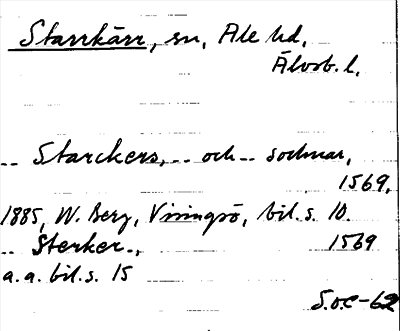 Starrkärr, sn, Ale hd,
Älvsb. l.
-- Starckers, -- och -- socknar,
1569,
1885, W. Berg, Visingsö, bil. s. 10.
-- Sterker --, 1569
a. a. bil. s. 15
S.o.C-62